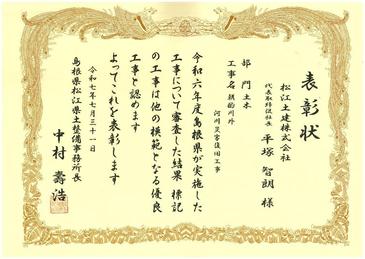 表彰状
松江土建株式会社
代表取締役社長 平塚智朗 様
部門 土木
工事名 朝酌川外
河川災害復旧工事
令和六年度島根県が実施した
工事について審査した結果 標記
の工事は他の模範となる優良
工事と認めます
よってこれを表彰します
令和七年七月三十一日
島根県松江県土整備事務所長
中村壽浩